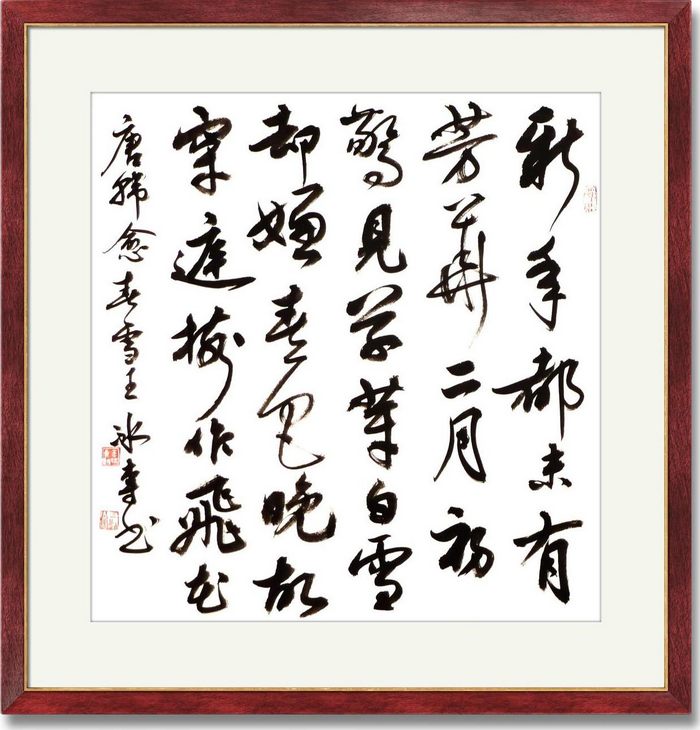 新年都未有
芳華二月初
驚見草芽白雪
却嫌春色晚故
穿庭樹作飛花
唐韩愈春雪王冰书